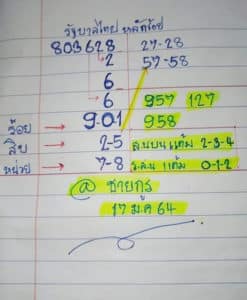 รัฐบาลไทย หลักร้อย
803628 27-28
2 57-58
6
6 957 127
ร้อย → 901 958
สิบ → 2-5 ลบบนแต้ม 2-3-4
หน่วย → 7-8 ล.ล.แต้ม 0-1-2
@ ชายกรู
17 ม.ค 64